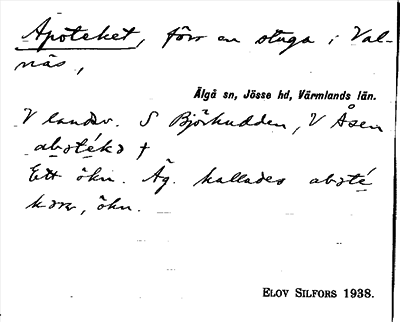 Apoteket, förr en stuga i Val-
näs,
Älgå sn, Jösse hd, Värmlands län.
V landsv. S Björkudden, V Åsen
abotékɔ †
Ett ökn. Äg. kallades aboté
kɔrə, ökn.
ELOV SILFORS 1938.